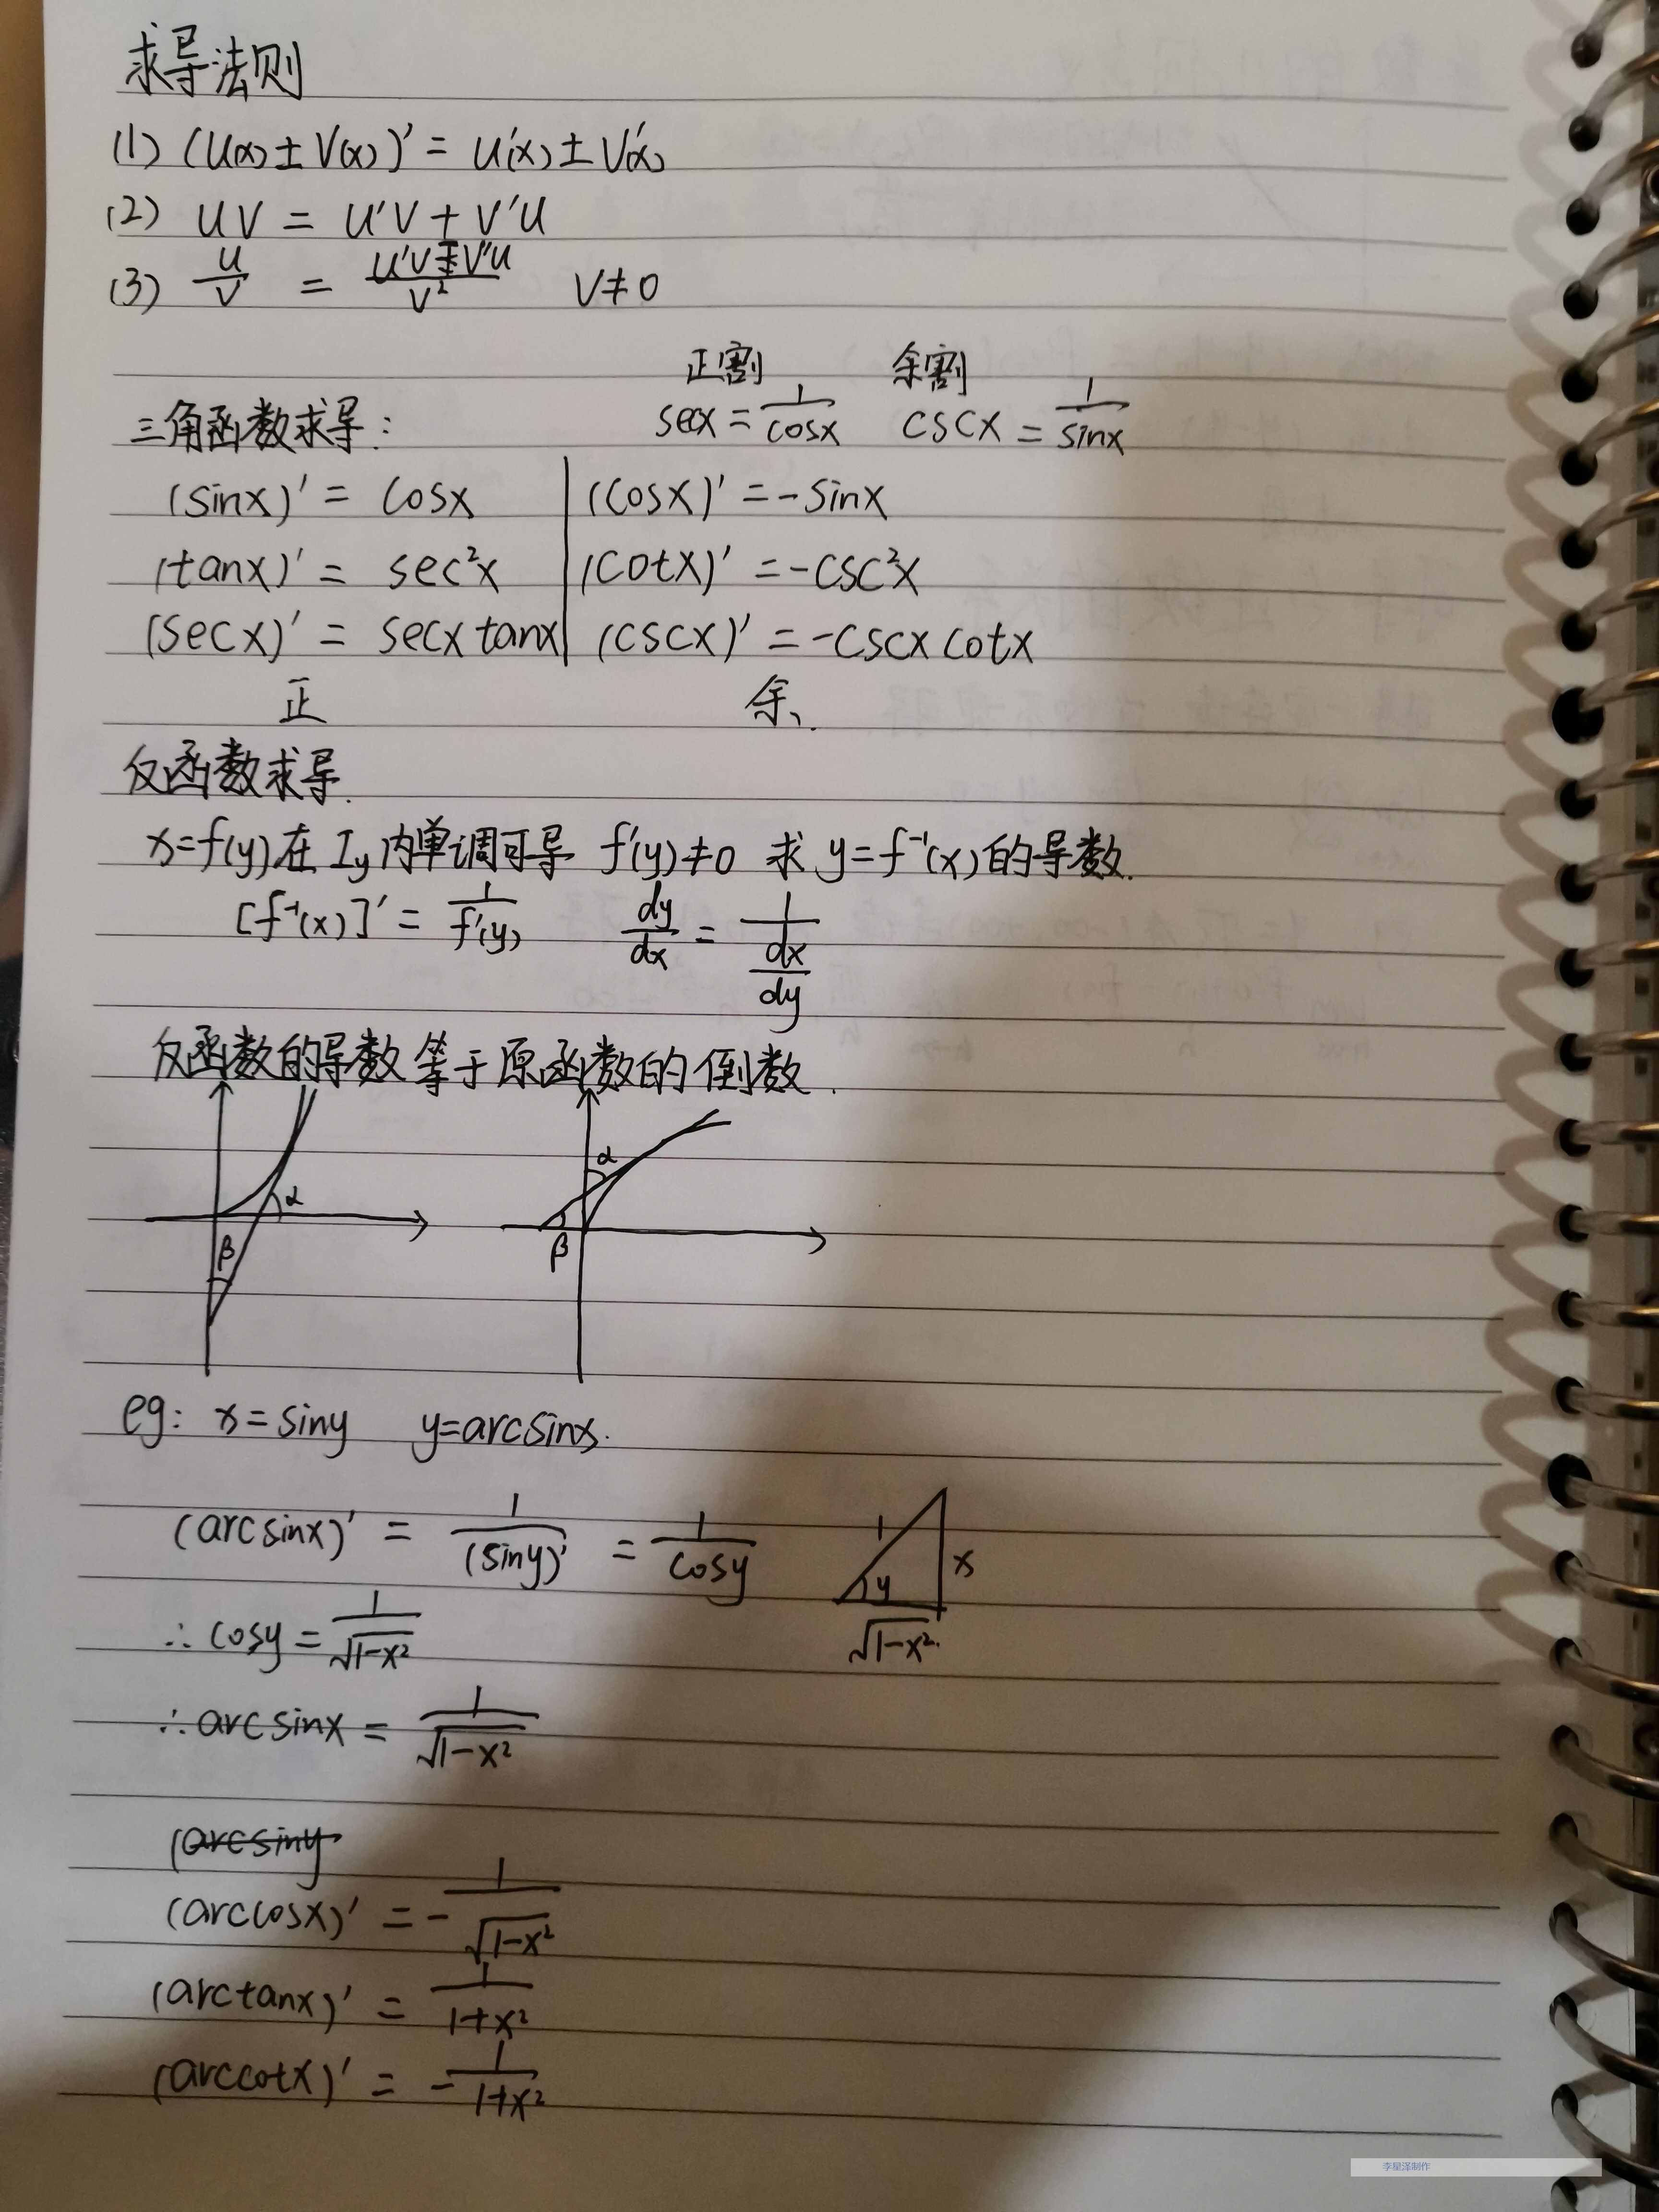 求导法则
(1) (u(x)±v(x))′ = u′(x)±v′(x)
(2) uv = u′v + v′u
(3) u/v = (u′v - v′u)/v² v≠0
正割 余割
三角函数求导: secx = 1/cosx cscx = 1/sinx
(sinx)′ = cosx (cosx)′ = -sinx
(tanx)′ = sec²x (cotx)′ = -csc²x
(secx)′ = secx tanx (cscx)′ = -cscx cotx
正 余、
反函数求导.
x=f(y)在 Iy 内单调可导 f′(y)≠0 求 y=f⁻¹(x)的导数.
[f⁻¹(x)]′ = 1/f′(y) dy/dx = 1/(dx/dy)
反函数的导数等于原函数的倒数.
α α
β β
eg: x=siny y=arcsinx.
(arcsinx)′ = 1/(siny)′ = 1/cosy 1 x y
∴cosy = 1/√(1-x²) √(1-x²)
∴arcsinx = 1/√(1-x²)
(arcsiny
(arccosx)′ = - 1/√(1-x²)
(arctanx)′ = 1/(1+x²)
(arccotx)′ = - 1/(1+x²)
李星泽制作